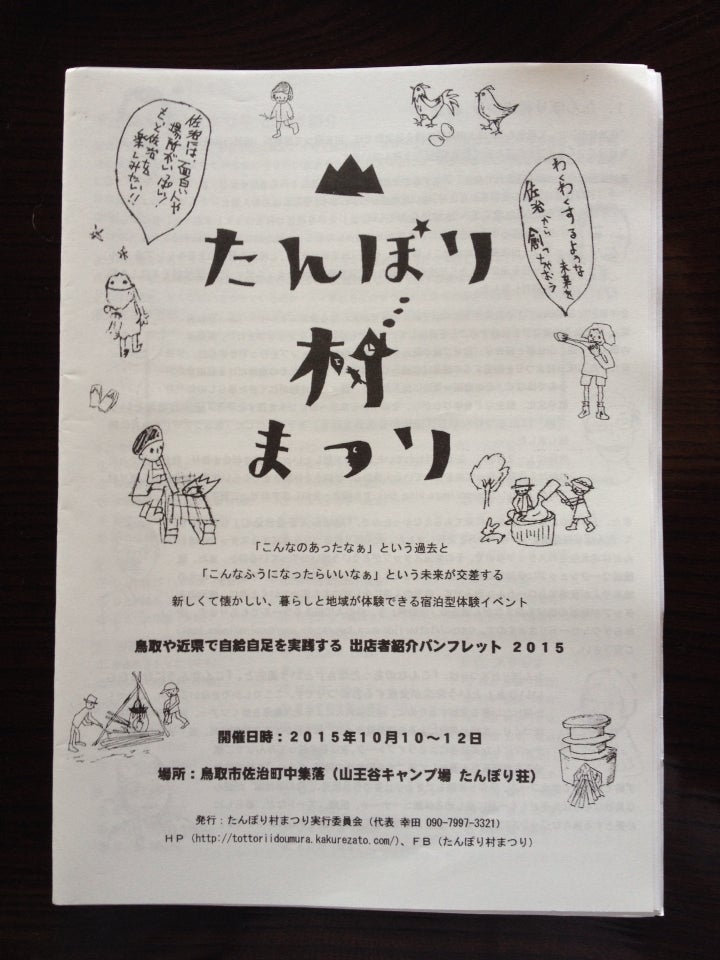 佐治には、面白い人や
場所がいっぱい!
もっと佐治を
楽しみたい!!
わくわくするような
未来を
佐治から
創っちゃおう
たんぼり
村
まつり
「こんなのあったなぁ」という過去と
「こんなふうになったらいいなぁ」という未来が交差する
新しくて懐かしい、暮らしと地域が体験できる宿泊型体験イベント
鳥取や近県で自給自足を実践する 出店者紹介パンフレット 2015
開催日時：2015年10月10～12日
場所：鳥取市佐治町中集落（山王谷キャンプ場 たんぼり荘）
発行：たんぼり村まつり実行委員会（代表 幸田 090-7997-3321）
HP（http://tottoriidoumura.kakurezato.com/）、FB（たんぼり村まつり）